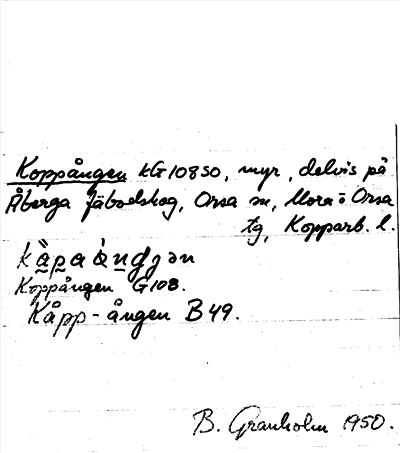 Koppången kG108SO, myr, delvis på
Åberga fäbodskog, Orsa sn, Mora o Orsa
tg, Kopparb. l.
Koppången G108.
Kåpp-ången B49.
B. Granholm 1950.